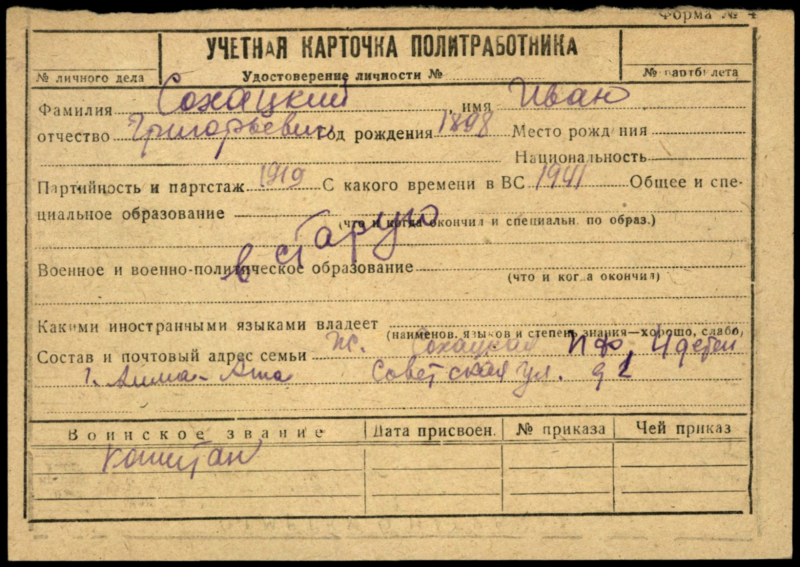 Форма № 4
УЧЕТНАЯ КАРТОЧКА ПОЛИТРАБОТНИКА
№ личного дела Удостоверение личности № № партбилета
Фамилия Сохацкий, имя Иван
отчество Григорьевич год рождения 1898 Место рождения
Национальность
Партийность и партстаж 1919 С какого времени в ВС 1941 Общее и спе-
циальное образование
(что и когда окончил и специальн. по образ.)
в старую
Военное и военно-политическое образование
(что и когда окончил)
Какими иностранными языками владеет
(наименов. языков и степень знания—хорошо, слабо,
Состав и почтовый адрес семьи ж. Сохацкая П.Ф., 4 детей
г. Алма-Ата Советская ул. д 2
Воинское звание Дата присвоен. № приказа Чей приказ
капитан